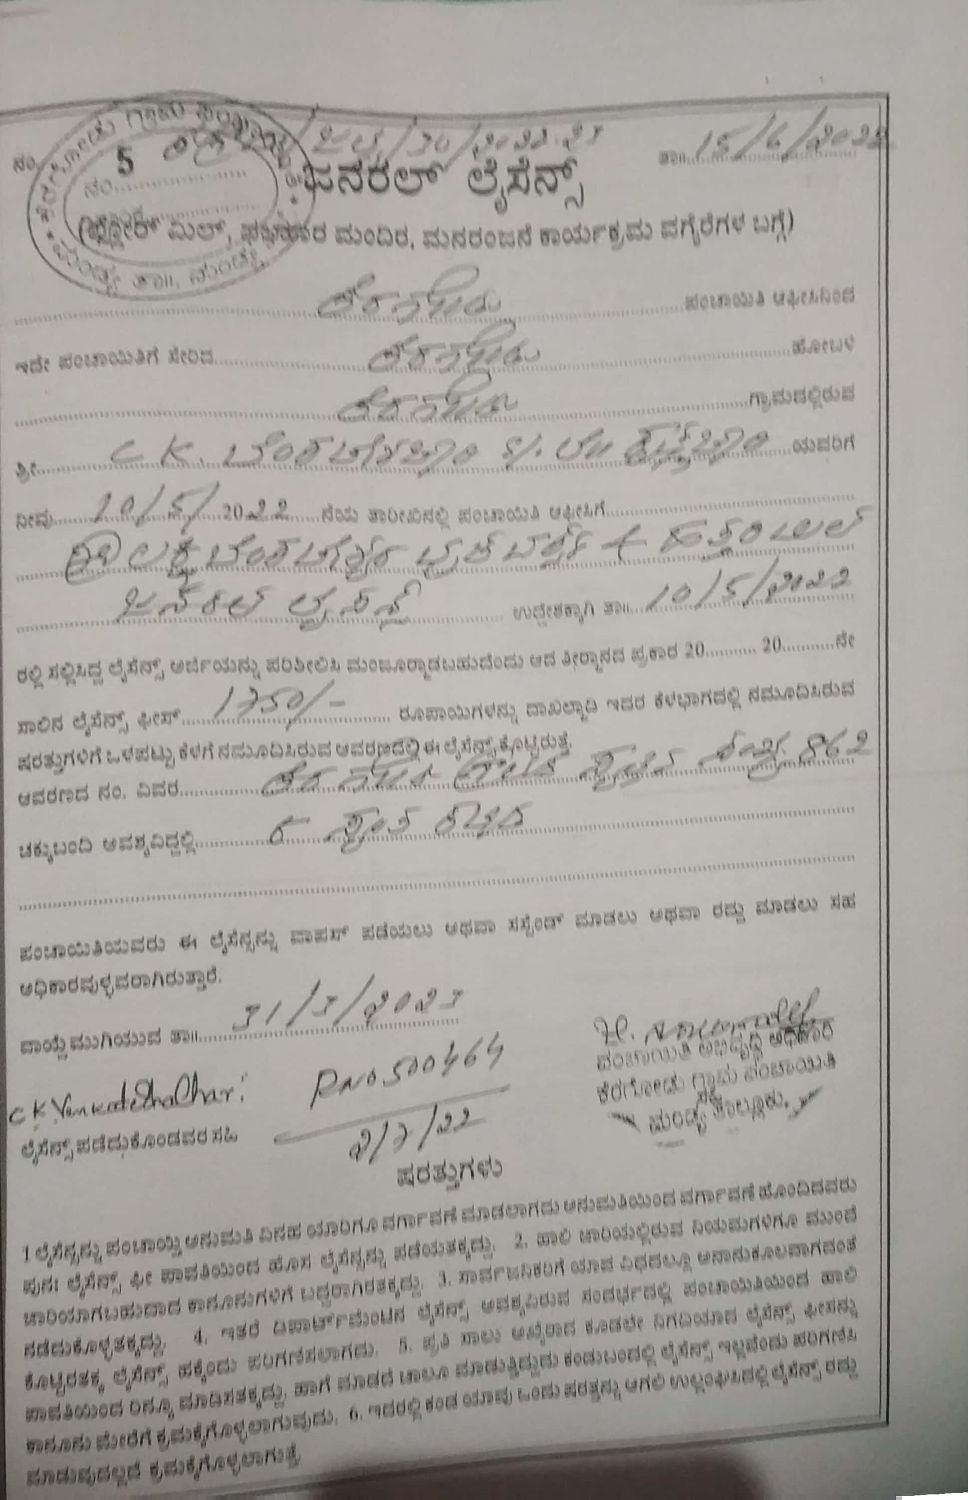 ನಂ. 5 /2022-23 ತಾ॥ 15/6/2022
ಜನರಲ್ ಲೈಸೆನ್ಸ್
(ಫ್ಲೋರ್ ಮಿಲ್, ಫಲಾಹಾರ ಮಂದಿರ, ಮನರಂಜನೆ ಕಾರ್ಯಕ್ರಮ ವಗೈರೆಗಳ ಬಗ್ಗೆ)
ಕೆರಗೋಡು ಪಂಚಾಯಿತಿ ಆಫೀಸಿನಿಂದ
ಇದೇ ಪಂಚಾಯಿತಿಗೆ ಸೇರಿದ ಕೆರಗೋಡು ಹೋಬಳಿ
ಕೆರಗೋಡು ಗ್ರಾಮದಲ್ಲಿರುವ
ಶ್ರೀ C K. ವೆಂಕಟಾಚಾರಿ ಯವರಿಗೆ
ನೀವು 10/5/2022 ನೆಯ ತಾರೀಖಿನಲ್ಲಿ ಪಂಚಾಯಿತಿ ಆಫೀಸಿಗೆ
ಶ್ರೀ ಲಕ್ಷ್ಮಿ ವೆಂಕಟೇಶ್ವರ
ಜನರಲ್ ಲೈಸೆನ್ಸ್ ಉದ್ದೇಶಕ್ಕಾಗಿ ತಾ॥ 10/5/2022
ರಲ್ಲಿ ಸಲ್ಲಿಸಿದ್ದ ಲೈಸೆನ್ಸ್ ಅರ್ಜಿಯನ್ನು ಪರಿಶೀಲಿಸಿ ಮಂಜೂರ್ಮಾಡಬಹುದೆಂದು ಆದ ತೀರ್ಮಾನದ ಪ್ರಕಾರ 20.......... 20..........ನೇ
ಸಾಲಿನ ಲೈಸೆನ್ಸ್ ಫೀಸ್ 1750/- ರೂಪಾಯಿಗಳನ್ನು ದಾಖಲ್ಮಾಡಿ ಇದರ ಕೆಳಭಾಗದಲ್ಲಿ ನಮೂದಿಸಿರುವ
ಷರತ್ತುಗಳಿಗೆ ಒಳಪಟ್ಟು ಕೆಳಗೆ ನಮೂದಿಸಿರುವ ಆವರಣದಲ್ಲಿ ಈ ಲೈಸೆನ್ಸ್ ಕೊಟ್ಟಿರುತ್ತೆ.
ಆವರಣದ ನಂ. ವಿವರ ಕೆರಗೋಡು 862
ಚಕ್ಕುಬಂದಿ ಅವಶ್ಯವಿದ್ದಲ್ಲಿ
ಪಂಚಾಯಿತಿಯವರು ಈ ಲೈಸೆನ್ಸನ್ನು ವಾಪಸ್ ಪಡೆಯಲು ಅಥವಾ ಸಸ್ಪೆಂಡ್ ಮಾಡಲು ಅಥವಾ ರದ್ದು ಮಾಡಲು ಸಹ
ಅಧಿಕಾರವುಳ್ಳವರಾಗಿರುತ್ತಾರೆ.
ವಾಯ್ದೆ ಮುಗಿಯುವ ತಾ॥ 31/3/2023
C K Venkateshachari
ಲೈಸೆನ್ಸ್ ಪಡೆದುಕೊಂಡವರ ಸಹಿ
RNO 500464
2/7/22
ಪಂಚಾಯಿತಿ ಅಭಿವೃದ್ಧಿ ಅಧಿಕಾರಿ
ಕೆರಗೋಡು ಗ್ರಾಮ ಪಂಚಾಯಿತಿ
ಮಂಡ್ಯ ತಾಲ್ಲೂಕು.
ಷರತ್ತುಗಳು
1 ಲೈಸೆನ್ಸನ್ನು ಪಂಚಾಯ್ತಿ ಅನುಮತಿ ವಿನಹ ಯಾರಿಗೂ ವರ್ಗಾವಣೆ ಮಾಡಲಾಗದು ಅನುಮತಿಯಿಂದ ವರ್ಗಾವಣೆ ಹೊಂದಿದವರು
ಪುನಃ ಲೈಸೆನ್ಸ್ ಫೀ ಪಾವತಿಯಿಂದ ಹೊಸ ಲೈಸೆನ್ಸನ್ನು ಪಡೆಯತಕ್ಕದ್ದು. 2. ಹಾಲಿ ಜಾರಿಯಲ್ಲಿರುವ ನಿಯಮಗಳಿಗೂ ಮುಂದೆ
ಜಾರಿಯಾಗಬಹುದಾದ ಕಾನೂನುಗಳಿಗೆ ಬದ್ಧರಾಗಿರತಕ್ಕದ್ದು. 3. ಸಾರ್ವಜನಿಕರಿಗೆ ಯಾವ ವಿಧದಲ್ಲೂ ಅನಾನುಕೂಲವಾಗದಂತೆ
ನಡೆದುಕೊಳ್ಳತಕ್ಕದ್ದು. 4. ಇತರೆ ಡಿಪಾರ್ಟ್‌ಮೆಂಟಿನ ಲೈಸೆನ್ಸ್ ಅವಶ್ಯವಿರುವ ಸಂದರ್ಭದಲ್ಲಿ ಪಂಚಾಯಿತಿಯಿಂದ ಹಾಲಿ
ಕೊಟ್ಟಿರತಕ್ಕ ಲೈಸೆನ್ಸ್ ಹಕ್ಕೆಂದು ಪರಿಗಣಿಸಲಾಗದು. 5. ಪ್ರತಿ ಸಾಲು ಆಖೈರಾದ ಕೂಡಲೇ ನಿಗದಿಯಾದ ಲೈಸೆನ್ಸ್ ಫೀಸನ್ನು
ಪಾವತಿಯಿಂದ ರಿನ್ಯೂ ಮಾಡಿಸತಕ್ಕದ್ದು. ಹಾಗೆ ಮಾಡದೆ ಚಾಲೂ ಮಾಡುತ್ತಿದ್ದುದು ಕಂಡುಬಂದಲ್ಲಿ ಲೈಸೆನ್ಸ್ ಇಲ್ಲವೆಂದು ಪರಿಗಣಿಸಿ
ಕಾನೂನು ಮೇರೆಗೆ ಕ್ರಮಕೈಗೊಳ್ಳಲಾಗುವುದು. 6. ಇದರಲ್ಲಿ ಕಂಡ ಯಾವು ಒಂದು ಷರತ್ತನ್ನು ಆಗಲಿ ಉಲ್ಲಂಘಿಸಿದಲ್ಲಿ ಲೈಸೆನ್ಸ್ ರದ್ದು
ಮಾಡುವುದಲ್ಲದೆ ಕ್ರಮಕೈಗೊಳ್ಳಲಾಗುತ್ತೆ.